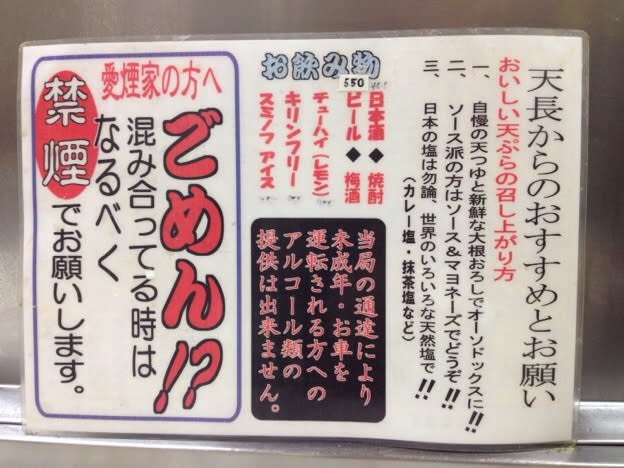 天長からのおすすめとお願い
おいしい天ぷらの召し上がり方
一、自慢の天つゆと新鮮な大根おろしでオーソドックスに!!
二、ソース派の方はソース&マヨネーズでどうぞ!!
三、日本の塩は勿論、世界のいろいろな天然塩で!!
(カレー塩・抹茶塩など)
お飲み物
550
日本酒◆焼酎
ビール◆梅酒
チューハイ(レモン)
キリンフリー
スミノフアイス
当局の通達により
未成年・お車を
運転される方への
アルコール類の
提供は出来ません。
愛煙家の方へ
ごめん!?
混み合ってる時は
なるべく
禁煙でお願いします。